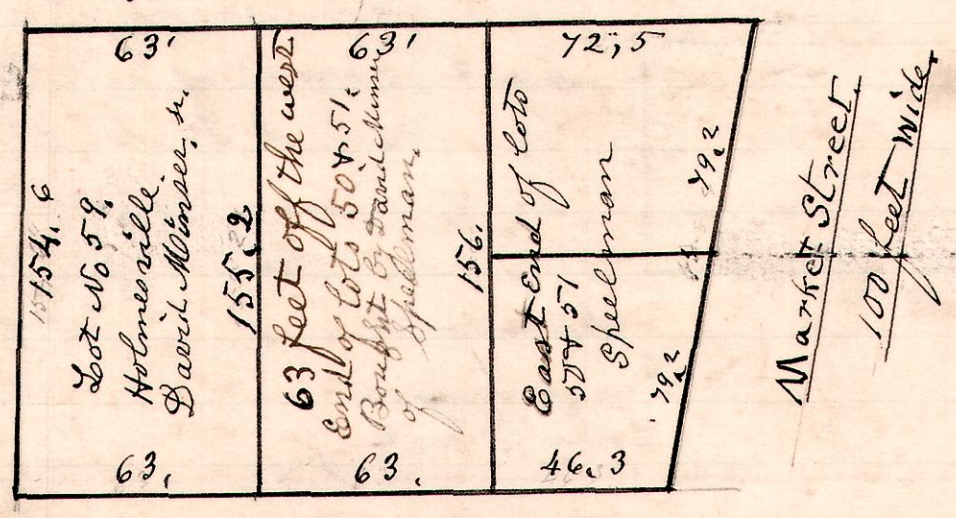 63'
154. 6
Lot No 59.
Holmesville.
David Münser, sr.
63.
155. 2
63'
63 feet off the west
End of Lots 50 & 51.
Bought by David Münser
of Spellman.
63.
156.
72,5
East End of Lots
50 & 51
Speelman
79,2
79,2
46. 3
Market Street.
100 feet wide.